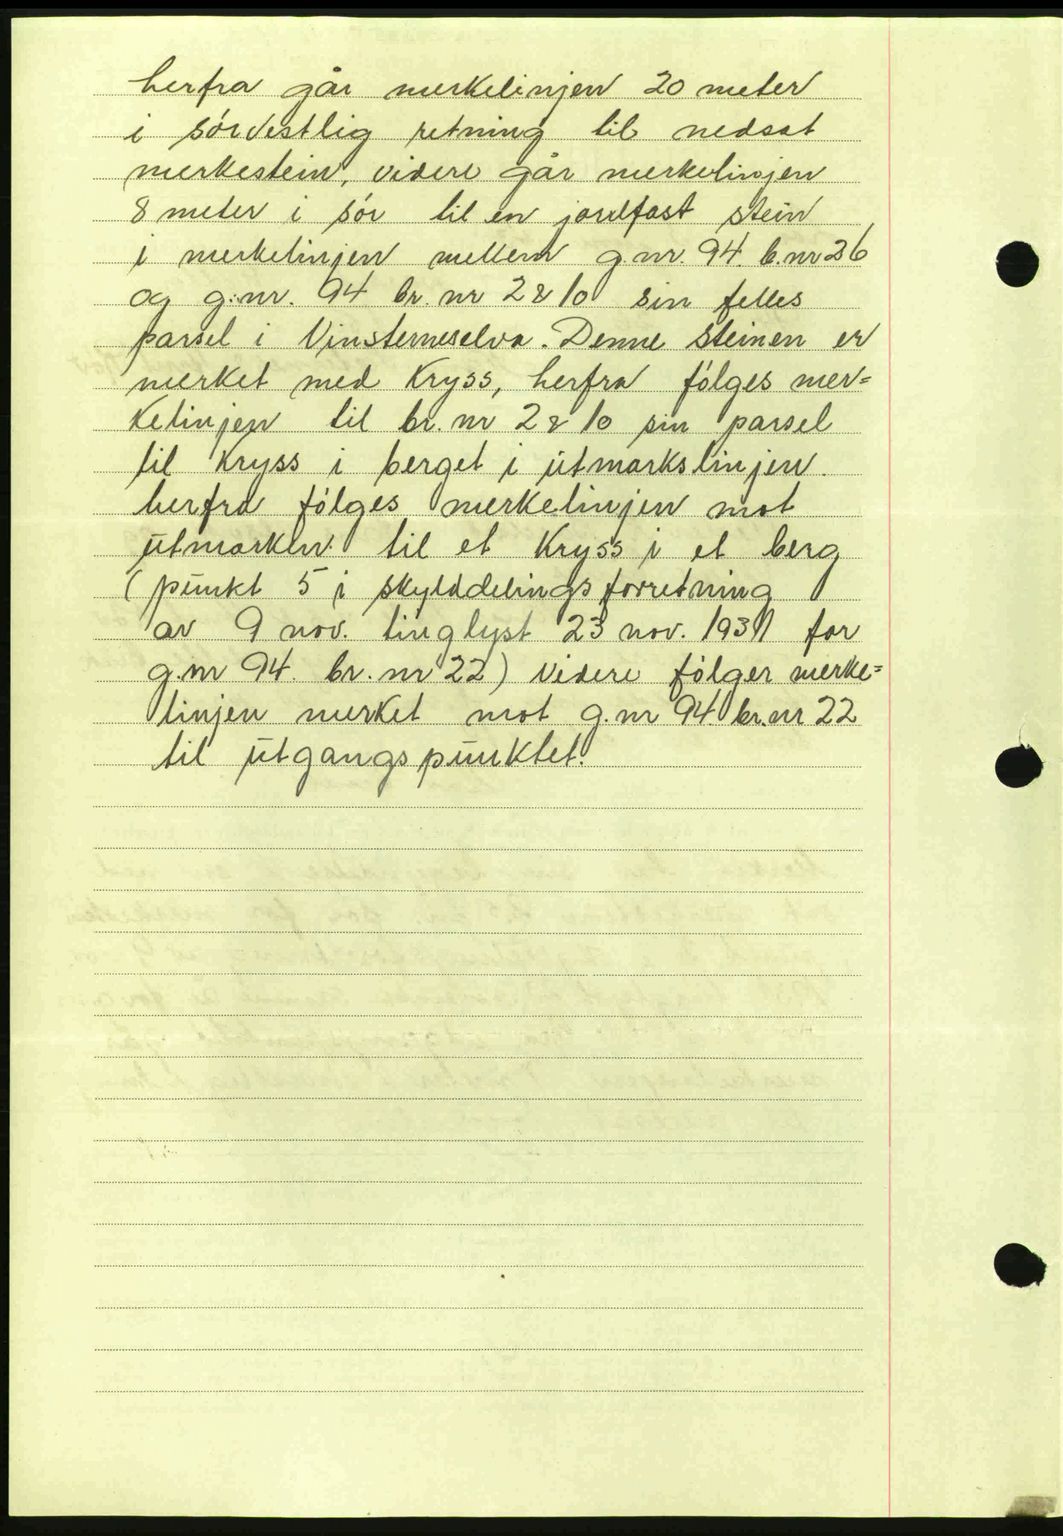 herfra går merkelinjen 20 meter
i sørvestlig retning til nedsat
merkestein, videre går merkelinjen
8 meter i sør til en jordfast stein
i merkelinjen mellem g.nr. 94 b.nr 26
og g.nr. 94 br. nr 2 & 10 sin felles
parsel i Vinsterneselva. Denne steinen er
merket med Kryss, herfra følges mer=
kelinjen til br. nr 2 & 10 sin parsel
til kryss i berget i utmarkslinjen.
herfra følges merkelinjen mot
utmarken til et Kryss i et berg
(punkt 5 i skylddelingsforretning
av 9 nov. tinglyst 23 nov. 1931 for
g.nr 94. br. nr 22) videre følger merke=
linjen merket mot g.nr 94 br.nr 22
til utgangspunktet.